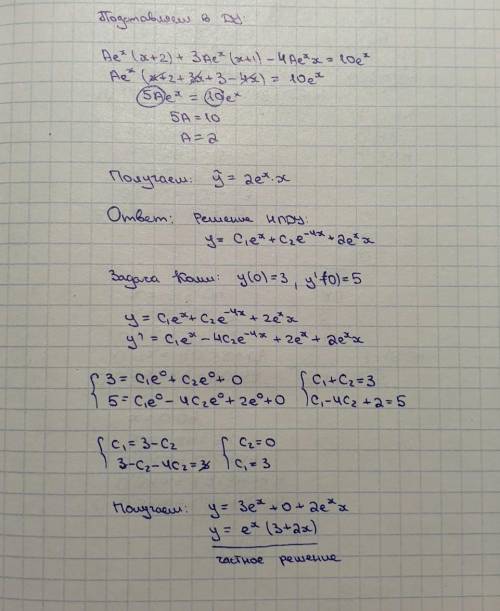 Подставляем в ДУ:
Ae^x (x+2) + 3Ae^x (x+1) - 4Ae^x x = 10e^x
Ae^x (x+2 + 3x + 3 - 4x) = 10e^x
5Ae^x = 10e^x
5A = 10
A = 2
Получаем: ỹ = 2e^x · x
Ответ: решение НЛДУ:
y = C₁e^x + C₂e^-4x + 2e^x x
Задача Коши: y(0) = 3, y'(0) = 5
y = C₁e^x + C₂e^-4x + 2e^x x
y' = C₁e^x - 4C₂e^-4x + 2e^x + 2e^x x
{ 3 = C₁e⁰ + C₂e⁰ + 0 { C₁ + C₂ = 3
5 = C₁e⁰ - 4C₂e⁰ + 2e⁰ + 0 C₁ - 4C₂ + 2 = 5
{ C₁ = 3 - C₂ { C₂ = 0
3 - C₂ - 4C₂ = 3 C₁ = 3
Получаем: y = 3e^x + 0 + 2e^x x
y = e^x (3 + 2x)
частное решение